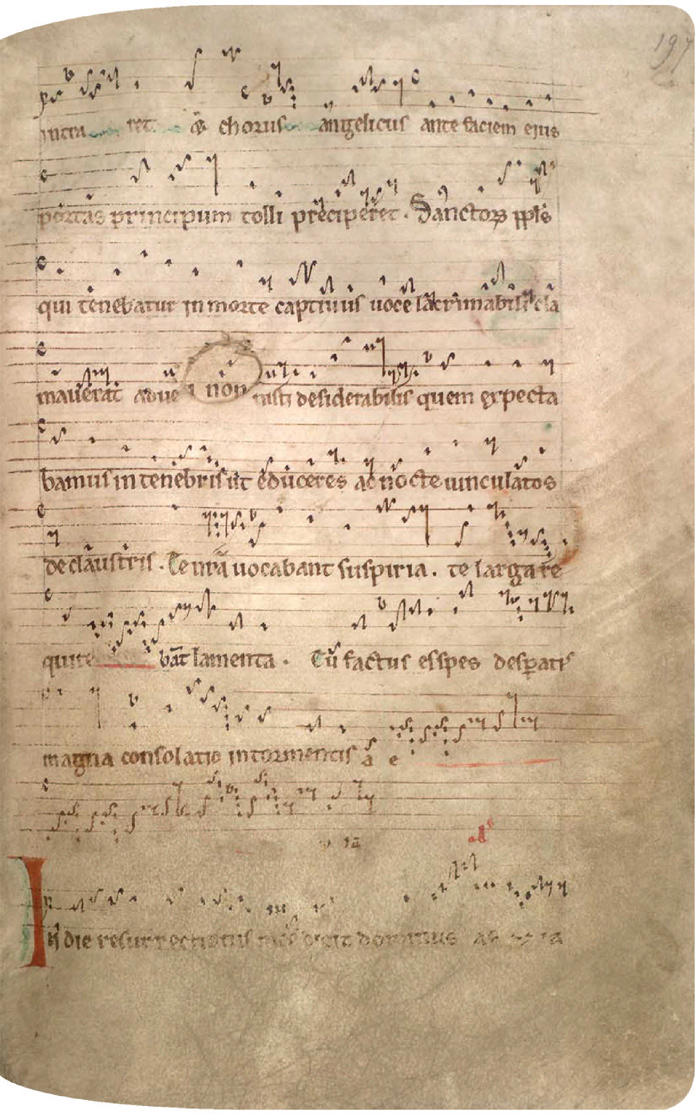 197
intra ret & chorus angelicus ante faciem eius
portas principum tolli preciperet. Sanctorꝝ ppl̅s
qui tenebatur in morte captiuus uoce lacrimabili cla
mauerat adue non nisti desiderabilis quem expecta
bamus in tenebris ut educeres ac nocte uinculatos
de claustris. Te nr̅a uocabant suspiria. te larga re
quire bāt lamenta. Tu factus es spes desperatis
magna consolatio in tormentis a e
In die resurrectionis mee dicit dominus ae ia